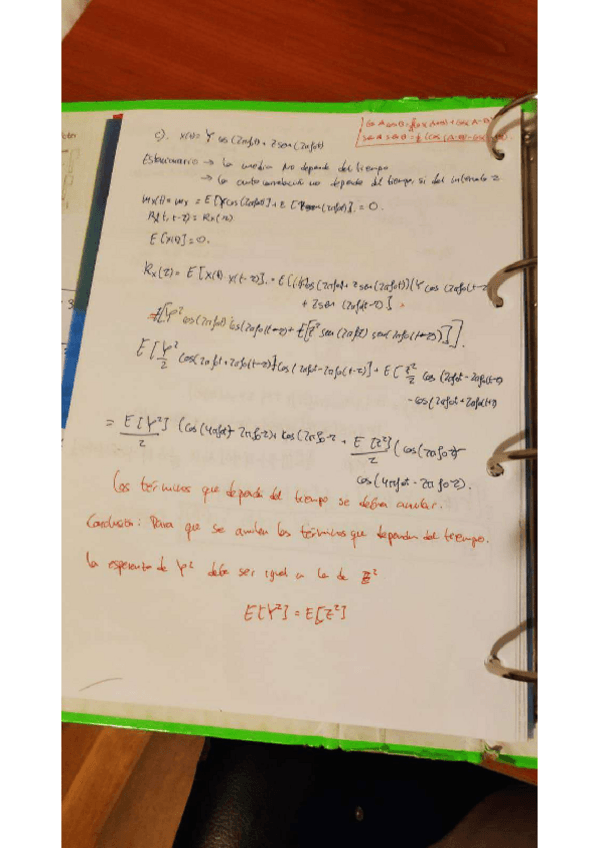 cos A cos B = ½ (cos (A+B) + cos (A-B)
sen A sen B = ½ (cos (A-B) - cos (A+B)
c). X(t) = Y cos (2πf₀t) + Z sen (2πf₀t)
Estacionario → la media No depende del tiempo
→ la autocorrelación no depende del tiempo, si del intervalo z
mx(t) = mx = E[Ycos(2πf₀t)] + E[Zsen(2πf₀t)] = 0.
Rx(t, t-z) = Rx(z)
E[X(t)] = 0.
Rx(z) = E[X(t)·X(t-z)] = E[(Ycos(2πf₀t) + Zsen(2πf₀t))(Y cos (2πf₀(t-z)
+ Zsen (2πf₀(t-z)]
E[Y² cos(2πf₀t) cos(2πf₀(t-z)) + E[Z² sen(2πf₀t) sen(2πf₀(t-z))]].
E[Y²/2 cos(2πf₀t + 2πf₀(t-z)) + cos(2πf₀t - 2πf₀(t-z)] + E[Z²/2 cos (2πf₀t - 2πf₀(t-z)
- cos(2πf₀t + 2πf₀(t-z)
= E[Y²]/2 (cos(4πf₀t - 2πf₀z) + cos(2πf₀z + E[Z²]/2 (cos(2πf₀z) -
cos(4πf₀t - 2πf₀z).
Los términos que dependen del tiempo se deben anular.
Conclusión: Para que se anulen los términos que dependen del tiempo.
la esperanza de Y² debe ser igual a la de Z²
E[Y²] = E[Z²]